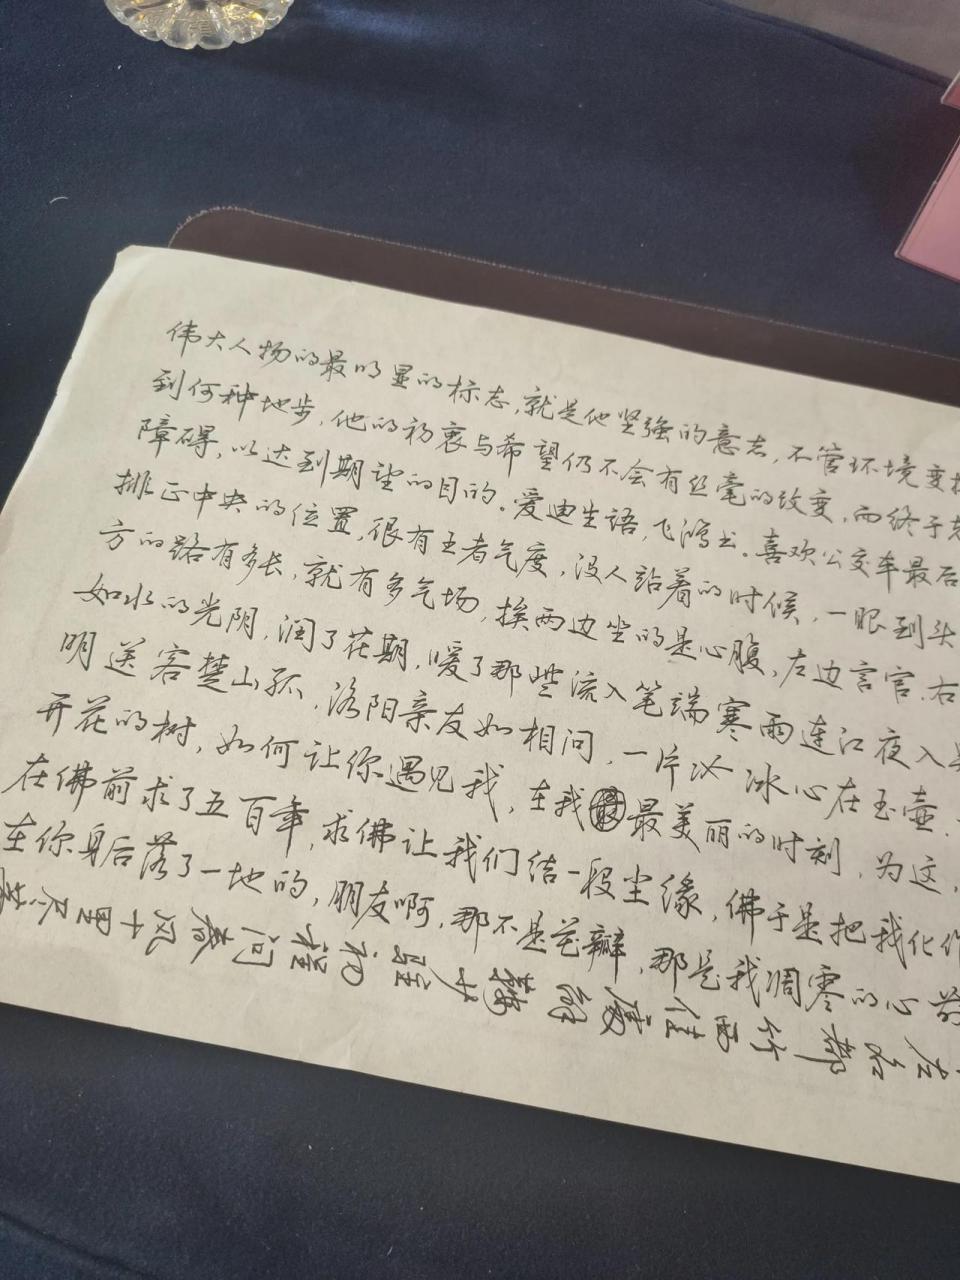 伟大人物的最明显的标志，就是他坚强的意志，不管环境变换
到何种地步，他的初衷与希望仍不会有丝毫的改变，而终于克
障碍，以达到期望的目的。爱迪生语，飞鸿书。喜欢公交车最后
排正中央的位置，很有王者气度，没人站着的时候，一眼到头
方的路有多长，就有多气场，挨两边坐的是心腹，左边言官，右
如水的光阴，润了花期，暖了那些流入笔端寒雨连江夜入
明送客楚山孤，洛阳亲友如相问，一片冰心在玉壶，
开花的树，如何让你遇见我，在我最美丽的时刻，为这，
在佛前求了五百年，求佛让我们结一段尘缘，佛于是把我化作
在你身后落了一地的，朋友啊，那不是花瓣，那是我凋零的心
左名都竹西佳处解鞍少驻初程问春风十里尽荠